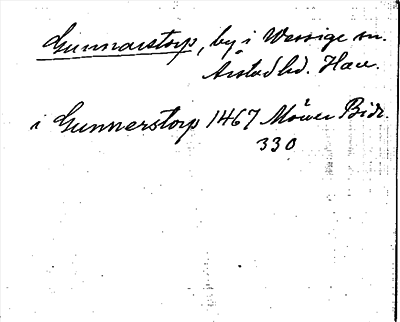 Gunnarstorp, by i Wessige sn.
Årstad hd. Hall.
i Gunnerstorp 1467 Möwer Bidr.
330